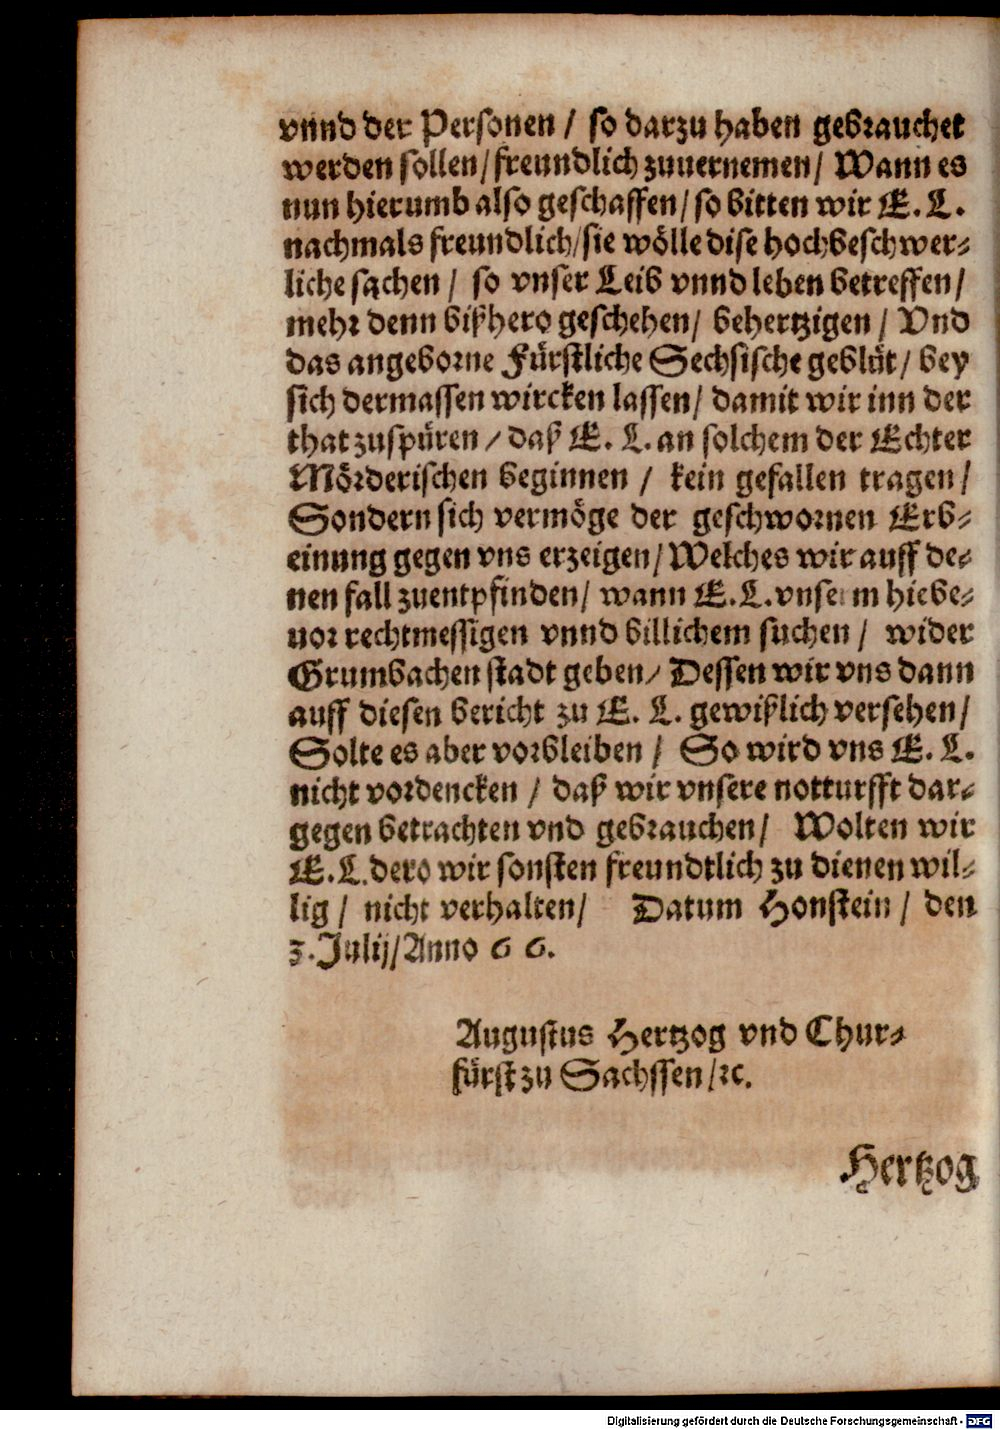 vnnd der Personen / so darzu haben gebrauchet
werden sollen / freundlich zuuernemen / Wann es
nun hierumb also geschaffen / so bitten wir E. L.
nachmals freundlich / sie wölle dise hochbeschwer-
liche sachen / so vnser Leib vnnd leben betreffen /
mehr denn bißhero geschehen / behertzigen / Vnd
das angeborne Fürstliche Sechsische geblüt / bey
sich dermassen wircken lassen / damit wir inn der
that zuspüren / daß E. L. an solchem der Echter
Mörderischen beginnen / kein gefallen tragen /
Sondern sich vermöge der geschwornen Erb-
einung gegen vns erzeigen / Welches wir auff de-
nen fall zuentpfinden / wann E. L. vnserm hiebe-
uor rechtmessigen vnnd billichem suchen / wider
Grumbachen stadt geben / Dessen wir vns dann
auff diesen bericht zu E. L. gewißlich versehen /
Solte es aber vorbleiben / So wird vns E. L.
nicht vordencken / daß wir vnsere notturfft dar-
gegen betrachten vnd gebrauchen / Wolten wir
E. L. dero wir sonsten freundtlich zu dienen wil-
lig / nicht verhalten / Datum Honstein / den
3. Julij / Anno 66.
Augustus Hertzog vnd Chur-
fürst zu Sachssen / ꝛc.
Hertzog
Digitalisierung gefördert durch die Deutsche Forschungsgemeinschaft - DFG